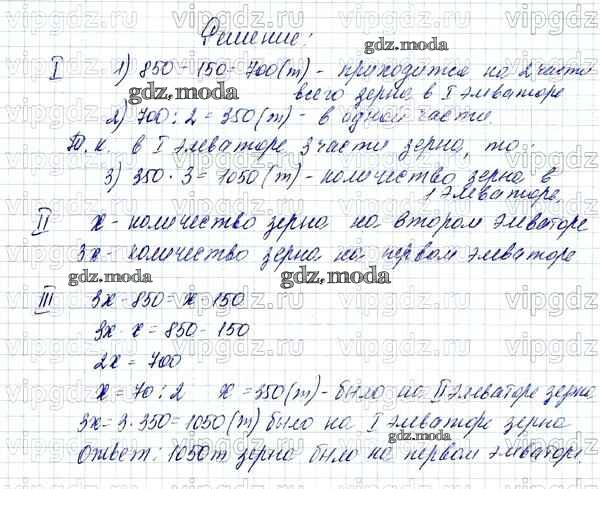 Решение:
I 1) 850 - 150 - 700 (т) - приходится на 2 части
всего зерна в I элеваторе
2) 700 : 2 = 350 (т) - в одной части.
Т.к. в I элеваторе 3 части зерна, то:
3) 350 · 3 = 1050 (т) - количество зерна в
1 элеваторе.
II x - количество зерна на втором элеваторе
3x - количество зерна на первом элеваторе
III 3x - 850 = x - 150
3x x = 850 - 150
2x = 700
x = 70 : 2 x = 350 (т) - было на II элеваторе зерна
3x = 3 · 350 = 1050 (т) было на I элеваторе зерна
Ответ: 1050т зерна было на первом элеваторе.
gdz.moda
gdz.moda
gdz.moda
gdz.moda
gdz.moda
gdz.moda
gdz.moda
vipgdz.ru